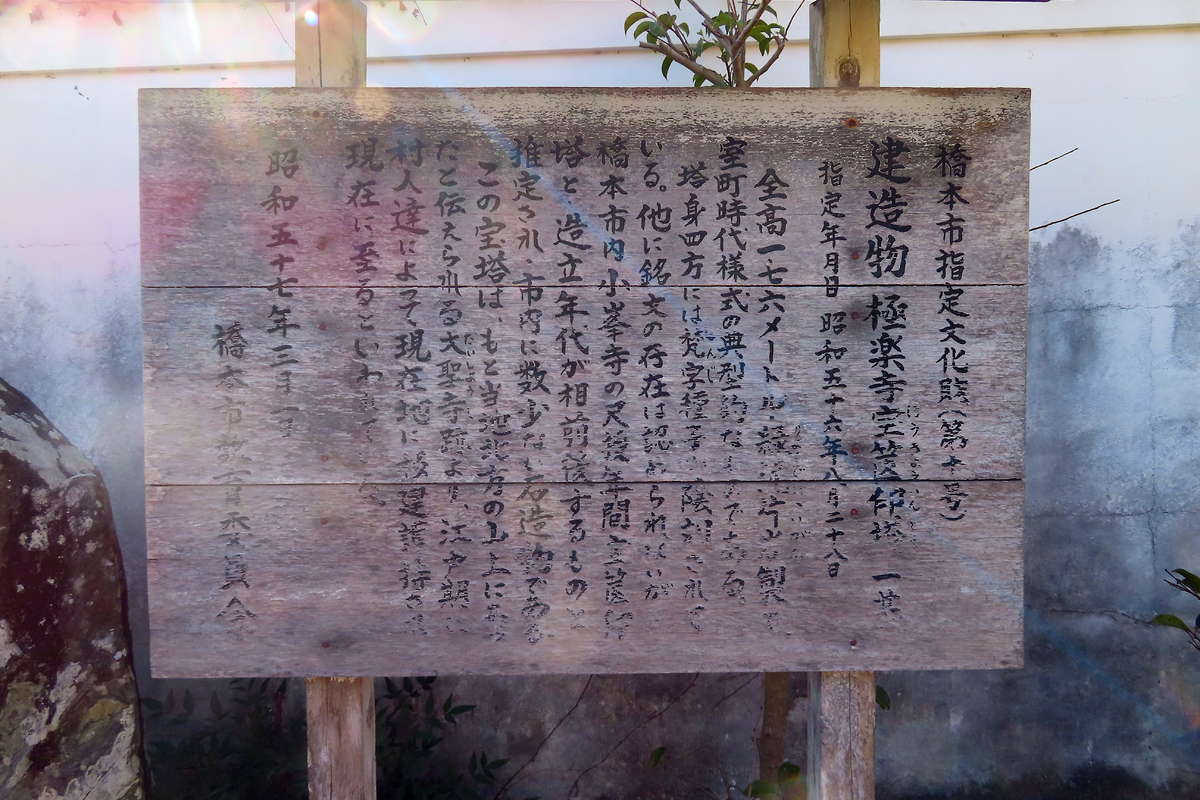 橋本市指定文化財(第十号)
建造物 極楽寺宝篋印塔 一基
指定年月日 昭和五十六年八月二十八日
全高一・七六メートル 製
室町時代様式の典型的な
塔身四方には梵字 陰刻されて
いる。他に銘文の存在は認められないが
橋本市内小峯寺の 年間宝篋印
塔と、造立年代が相前後するものと
推定され、市内に数少ない石造物である
この宝塔は、もと当地北方の山上にあっ
たと伝えられる大聖寺跡より、江戸期に
村人達によって現在地に移建護持され
現在に至るといわれて
昭和五十七年三月
橋本市教育委員会